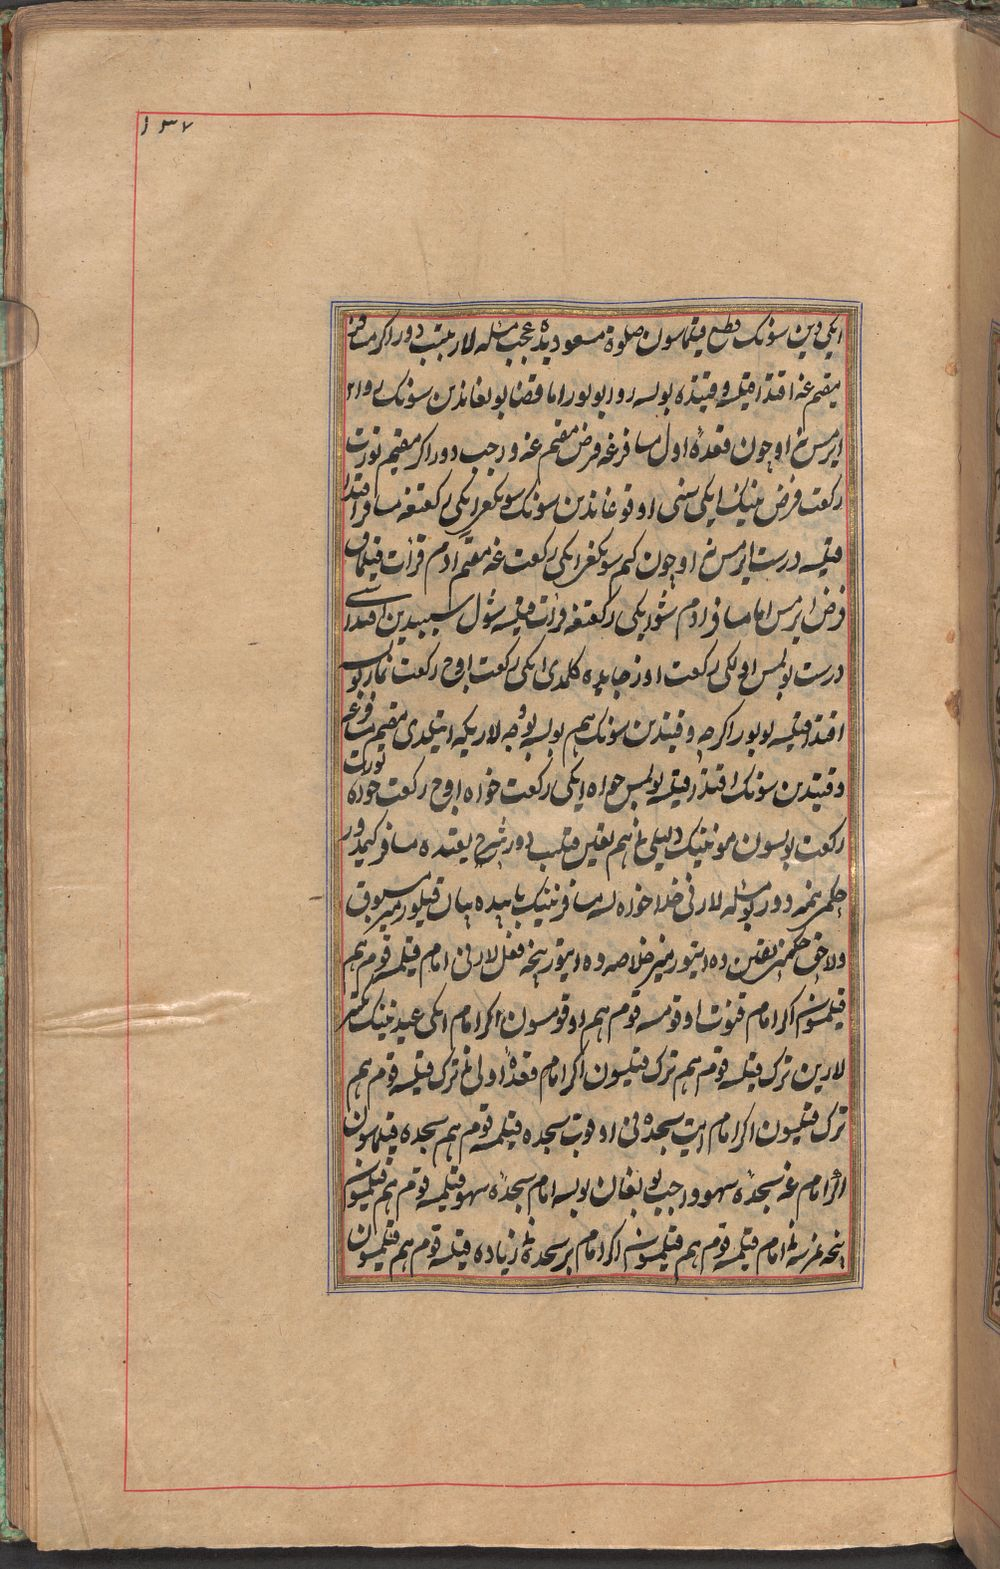 ١٣٧
ایکی دین سونک قطع قیلماسون صلوة مسعودیده عجب مسئله لار بیتیب دور اکر مسافر
مقیم غه اقتدا قیلسه وقتیده بولسه روا بولور اما قضا بولغاندین سونک روا
ایرمس نه اوچون قعدهٔ اول مسافرغه فرض مقیم غه واجب دور اکر مقیم تورت
رکعت فرض نینک ایکی سنی اوقوغاندین سونک سونکغی ایکی رکعتغه مسافر اقتدا
قیلسه درست ایرمس نه اوچون کم سونکغی ایکی رکعت غه مقیم ادم قرأت قیلماق
فرض ایرمس اما مسافر ادم شو ایکی رکعتغه قرأت قیلسه شول سببیدین اقتداسی
درست بولمس اولکی رکعت اوز جاییده کلدی ایکی رکعت اوچ رکعت نماز بولسه
اقتدا قیلسه بولور اکرچه وقتیدین سونک هم بولسه بو وجه لاریکه ایتیلدی مقیم مسافرغه
وقتیدین سونک اقتدا قیلسه بولمس خواه ایکی رکعت خواه اوچ رکعت خواه تورت
رکعت بولسون مونینک دلیلی نی هم یقین قیلیب دور شرح یقتده مسافر کیمدور
حکمی نمه دور بو مسئله لارنی خدا خواه لسه مسافرنینک بابیده بیان قیلور میز مسبوق
ولاحق حکمی یقین ده ایتور میز خلاصه ده ایتور نیچه فعل لارنی امام قیلسه قوم هم
قیلسون اکر امام قنوت اوقومسه قوم هم اوقومسون اکر امام ایکی عید نینک تکبیر
لارین ترک قیلسه قوم هم ترک قیلسون اکر امام قعدهٔ اولی نی ترک قیلسه قوم هم
ترک قیلسون اکر امام ایت سجده نی اوقوب سجده قیلمسه قوم هم سجده قیلماسون
اکر امام غه سجدهٔ سهو واجب بولغان بولسه امام سجدهٔ سهو قیلمسه قوم هم قیلمسون
نیچه نرسه نی امام قیلسه قوم هم قیلمسون اکر امام بر سجده نی زیاده قیلسه قوم هم قیلمسون